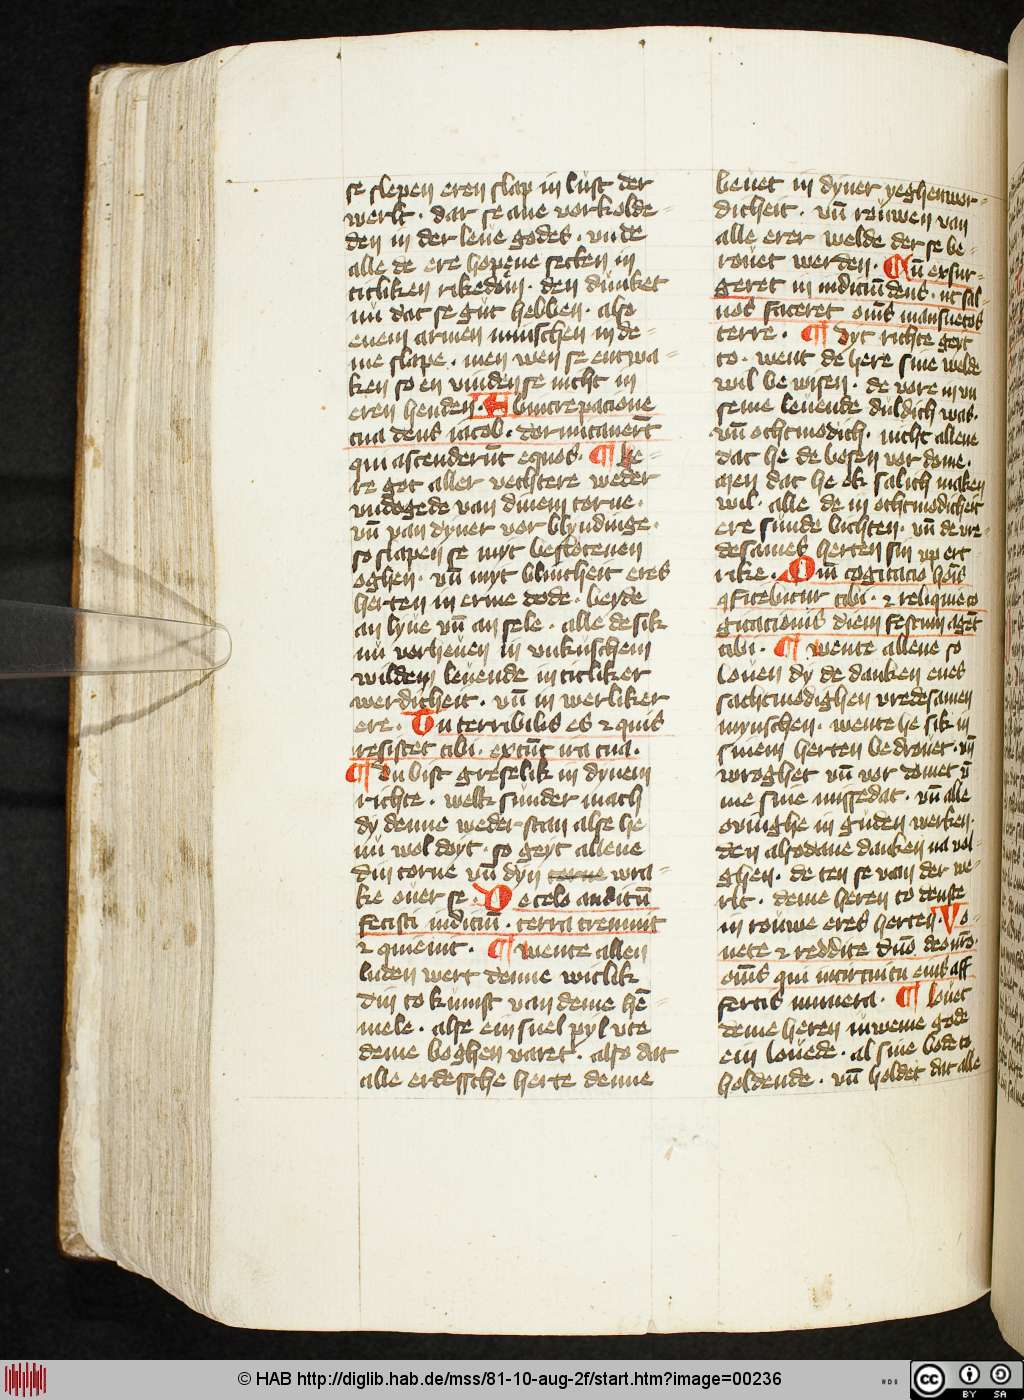 se slepen eren slap in lust der
werlt · dar se ane vorkolde=
den in der leue godes · vnde
alle de ere hopene setten in
titliken rikedom · den dunket
nu dat se gut hebben · also
enem armen minschen in de=
me slape · men wen se entwa=
ken so en vinden se nicht in
eren henden · Ab increpacione
tua deus iacob · dormitauerūt
qui ascenderūt equos · ¶ he=
re got aller rechtere weder
vndogede van dinem torne ·
vn̄ van dyner vor blyndinge ·
so slapen se myt beslotenen
oghen · vn̄ myt blintheit eres
herten in erme dode · beyde
an lyue vn̄ an sele · alle de sik
nu vorheuen in vnkuschem
wildem leuende in titliker
werdicheit · vn̄ in werliker
ere · Tu terribilis es ⁊ quis
resistet tibi · ex tūc ira tua ·
¶ Du bist greselik in dynem
richte · welk sunder mach
dy denne weder stan alse he
nu wol doyt · so geyt allene
din torne vn̄ dyn torne wra=
ke ouer se · De celo auditū
fecisti iudiciū · terra tremuit
⁊ quieuit · ¶ wente allen
luden wert denne witlik
din to kumst van deme he=
mele · alse ein snel pyl vte
deme boghen varet · also dat
alle erdessche herte denne
beuet in dyner yeghenwor=
dicheit · vn̄ rouwen van
alle erer welde der se be=
rouet werden · Cū exsur=
geret in iudiciū deus · ut sal=
uos faceret om̄s mansuetos
terre · ¶ dyt richte geyt
to · went de here sine welde
wil be wisen · de vore in vn
seme leuende duldich was ·
vn̄ othmodich · nicht allene
dat he de bosen vor dome ·
men dat he ok salich maken
wil · alle de in othmodicheit
ere sunde bichten · vn̄ de vre=
desames herten sin vp ert
rike · Qm̄ cogitacio hoīs
ꝯfitebitur tibi · ⁊ reliquie co
gitacionis diem festum agēt
tibi · ¶ wente allene so
louen dy de danken enes
sachtmodighen vredesamen
mynschen · wente he sik in
sinem herten bedrouet · vn̄
wroghet vn̄ vor domet v̄
me sine missedat · vn̄ alle
ouinghe in guden werken ·
den alsodane danken na vol=
ghen · de ten se van der we=
rlt · deme heren to denste
in rouwe eres herten · Vo=
uete ⁊ reddite dn̄o deo vr̄o ·
om̄s qui in circuitu eius aff
fertis munera · ¶ louet
deme heren iuweme gode
ein louede · al sine bode to
holdende · vn̄ holdet dat alle
© HAB http://diglib.hab.de/mss/81-10-aug-2f/start.htm?image=00236